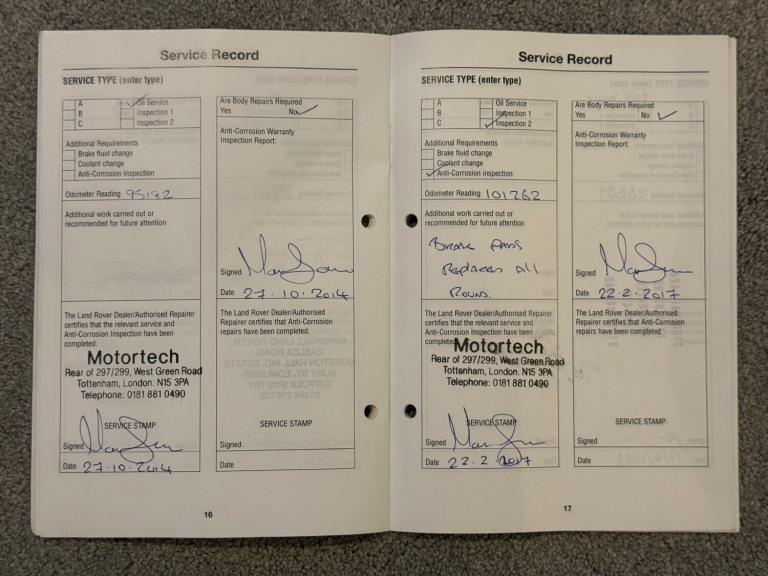 Service Record
SERVICE TYPE (enter type)
A Oil Service
B Inspection 1
C Inspection 2
Additional Requirements
Brake fluid change
Coolant change
Anti-Corrosion inspection
Odometer Reading 95192
Additional work carried out or
recommended for future attention
The Land Rover Dealer/Authorised Repairer
certifies that the relevant service and
Anti-Corrosion Inspection have been
completed.
Motortech
Rear of 297/299, West Green Road
Tottenham, London. N15 3PA
Telephone: 0181 881 0490
SERVICE STAMP
Signed
Date 27.10.2014
Are Body Repairs Required
Yes No
Anti-Corrosion Warranty
Inspection Report:
Signed
Date 27.10.2014
The Land Rover Dealer/Authorised
Repairer certifies that Anti-Corrosion
repairs have been completed.
SERVICE STAMP
Signed
Date
16
Service Record
SERVICE TYPE (enter type)
A Oil Service
B Inspection 1
C Inspection 2
Additional Requirements
Brake fluid change
Coolant change
Anti-Corrosion inspection
Odometer Reading 101262
Additional work carried out or
recommended for future attention
Brake Pads
Replaced All
Round.
The Land Rover Dealer/Authorised Repairer
certifies that the relevant service and
Anti-Corrosion Inspection have been
completed.
Motortech
Rear of 297/299, West Green Road
Tottenham, London. N15 3PA
Telephone: 0181 881 0490
SERVICE STAMP
Signed
Date 22.2.2017
Are Body Repairs Required
Yes No
Anti-Corrosion Warranty
Inspection Report:
Signed
Date 22.2.2017
The Land Rover Dealer/Authorised
Repairer certifies that Anti-Corrosion
repairs have been completed.
SERVICE STAMP
Signed
Date
17